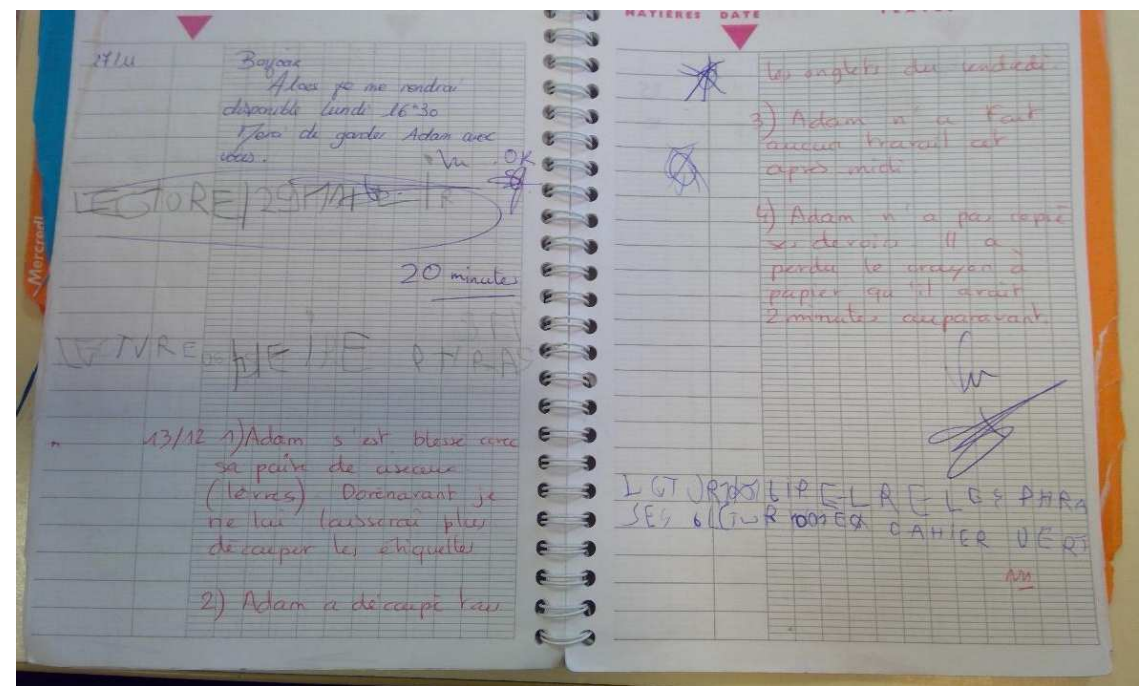 MATIÈRES DATE
27/11 Bonjour
Alors je me rendrai
disponible lundi 16h30
Merci de garder Adam avec
vous.
Vu OK
LECTORE
20 minutes
Mercredi
PHRAS
13/12 1) Adam s'est blessé avec
sa paire de ciseaux
(lèvres). Dorénavant je
ne lui laisserai plus
découper les étiquettes
2) Adam a découpé tous
les onglets du vendredi.
3) Adam n'a fait
aucun travail cet
après midi.
4) Adam n'a pas copié
ses devoirs. Il a
perdu le crayon à
papier qu'il avait
2 minutes auparavant.
Vu
LES PHRA
SES
CAHIER VERT